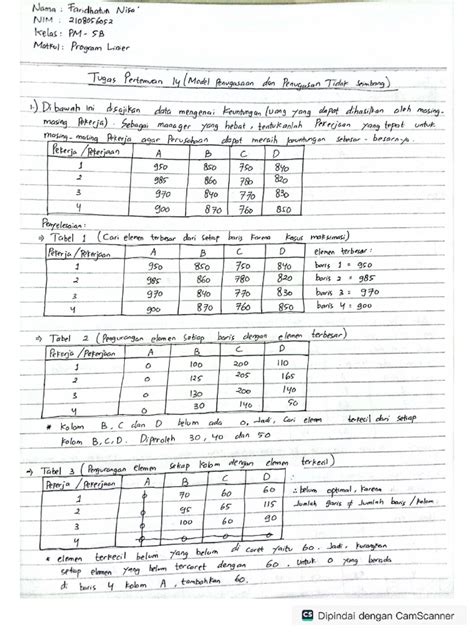 Nama : Faridhatun Nisa'
NIM : 2108056052
Kelas : PM - 5B
Matkul : Program Linier
Tugas Pertemuan 14 (Model Penugasan dan Penugasan Tidak Seimbang)
1.) Di bawah ini disajikan data mengenai keuntungan (uang yang dapat dihasilkan oleh masing-
masing Pekerja). Sebagai manager yang hebat, tentukanlah Pekerjaan yang tepat untuk
masing-masing Pekerja agar Perusahaan dapat meraih keuntungan sebesar-besarnya.
Pekerja / Pekerjaan A B C D
1 950 850 750 840
2 985 860 780 820
3 970 840 770 830
4 900 870 760 850
Penyelesaian :
⇒ Tabel 1 (Cari elemen terbesar dari setiap baris karena kasus maksimasi)
Pekerja / Pekerjaan A B C D elemen terbesar :
1 950 850 750 840 baris 1 = 950
2 985 860 780 820 baris 2 = 985
3 970 840 770 830 baris 3 = 970
4 900 870 760 850 baris 4 = 900
⇒ Tabel 2 (Pengurangan elemen setiap baris dengan elemen terbesar)
Pekerja / Pekerjaan A B C D
1 0 100 200 110
2 0 125 205 165
3 0 130 200 140
4 0 30 140 50
* Kolom B, C dan D belum ada 0, Jadi, Cari elemen terkecil dari setiap
kolom B, C, D. Diperoleh 30, 140 dan 50
⇒ Tabel 3 (Pengurangan elemen setiap kolom dengan elemen terkecil)
Pekerja / Pekerjaan A B C D
1 0 70 60 60 ∴ belum optimal, karena
2 0 95 65 115 Jumlah garis ≠ Jumlah baris / kolom.
3 0 100 60 90
4 0 0 0 0
* elemen terkecil belum yang belum di coret yaitu 60. Jadi, kurangkan
setiap elemen yang belum tercoret dengan 60. Untuk 0 yang berada
di baris 4 kolom A, tambahkan 60.
CS Dipindai dengan CamScanner